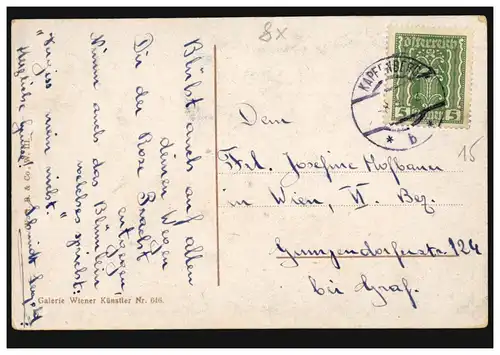 Blüht auch auf allen
deinen Wegen
Dir der Rose Pracht
entgegen,
Nimm auch das Blümlein
welches spricht:
"Vergiss mein nicht."
Herzliche Grüsse
Galerie Wiener Künstler Nr. 616.
8x
Dem
Frl. Josefine Hofbauer
in Wien, VI. Bez.
Gumpendorfustr. 124
bei Graf.
Österreich
5 5
KAPFENBERG
* b
15